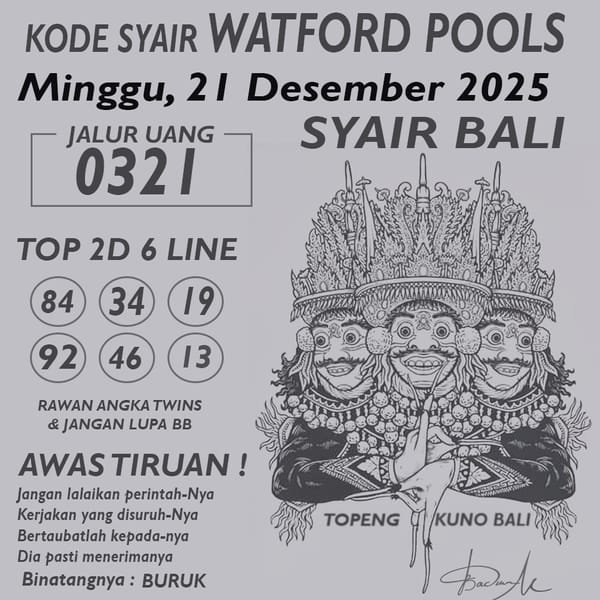 KODE SYAIR WATFORD POOLS
Minggu, 21 Desember 2025
SYAIR BALI
JALUR UANG
0321
TOP 2D 6 LINE
84 34 19
92 46 13
RAWAN ANGKA TWINS
& JANGAN LUPA BB
AWAS TIRUAN !
Jangan lalaikan perintah-Nya
Kerjakan yang disuruh-Nya
Bertaubatlah kepada-nya
Dia pasti menerimanya
Binatangnya : BURUK
TOPENG KUNO BALI